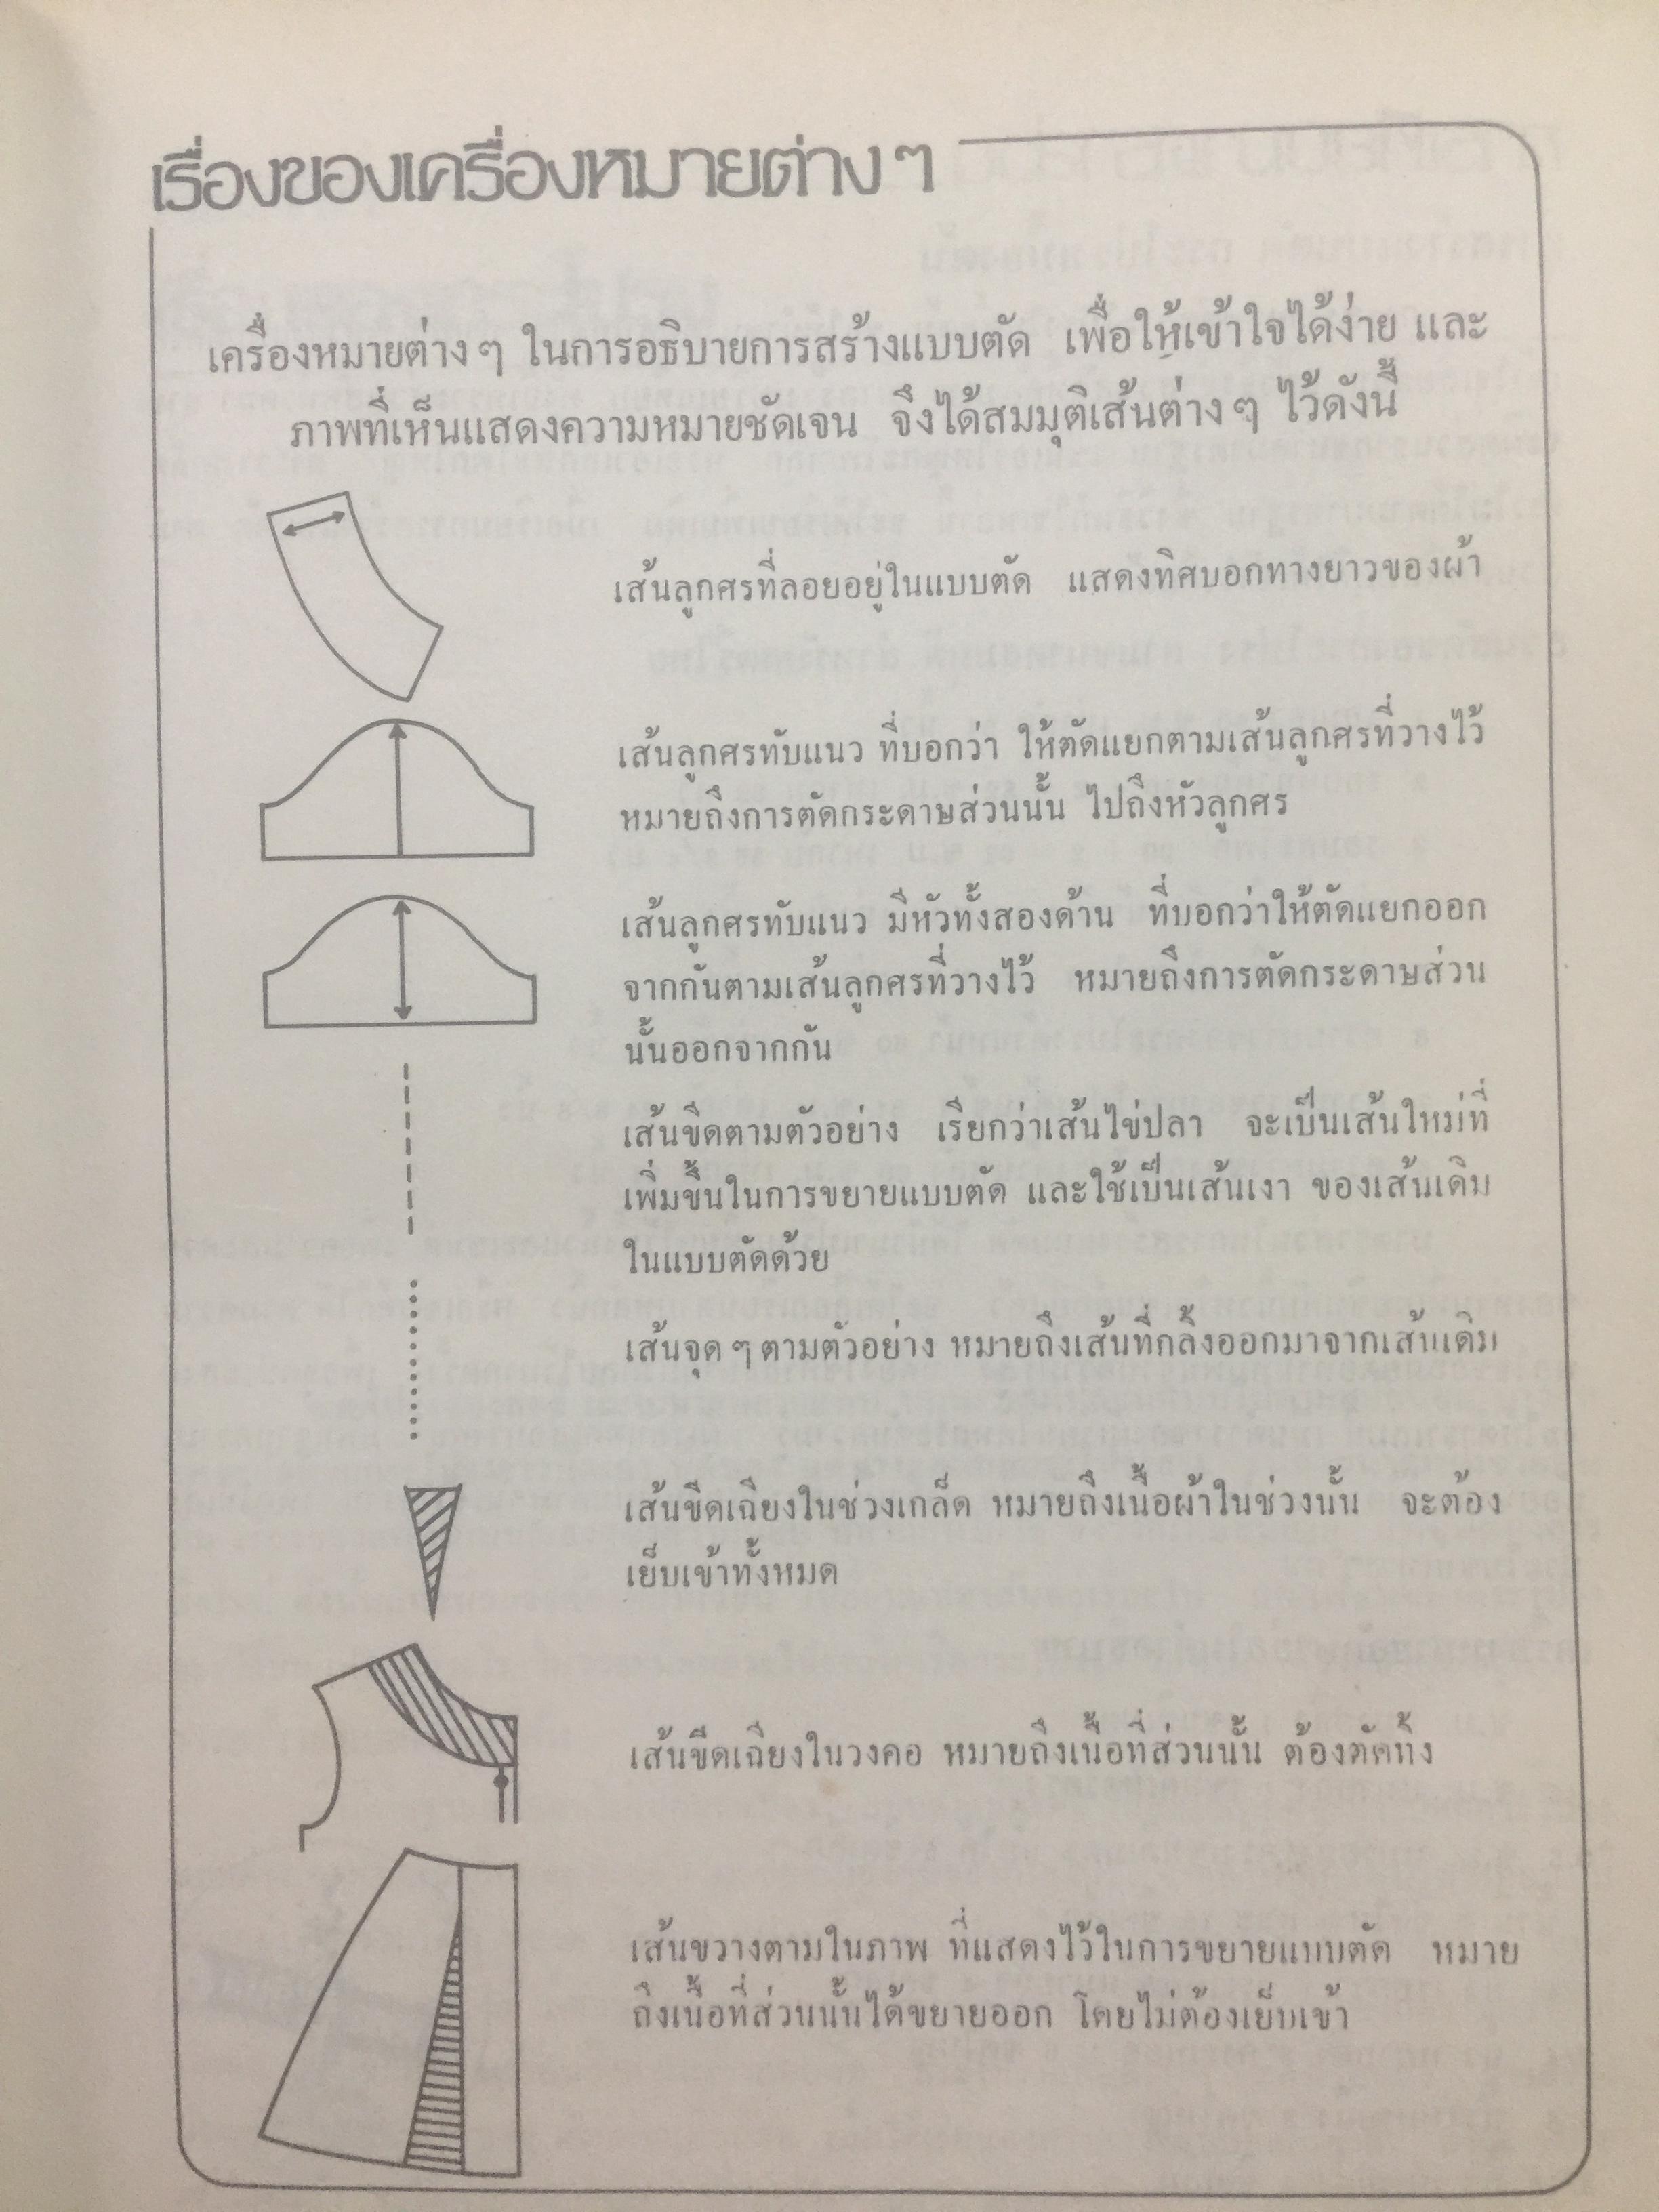 เรื่องของเครื่องหมายต่าง ๆ
เครื่องหมายต่าง ๆ ในการอธิบายการสร้างแบบตัด เพื่อให้เข้าใจได้ง่าย และ
ภาพที่เห็นแสดงความหมายชัดเจน จึงได้สมมุติเส้นต่าง ๆ ไว้ดังนี้
เส้นลูกศรที่ลอยอยู่ในแบบตัด แสดงทิศบอกทางยาวของผ้า
เส้นลูกศรทับแนว ที่บอกว่า ให้ตัดแยกตามเส้นลูกศรที่วางไว้
หมายถึงการตัดกระดาษส่วนนั้น ไปถึงหัวลูกศร
เส้นลูกศรทับแนว มีหัวทั้งสองด้าน ที่บอกว่าให้ตัดแยกออก
จากกันตามเส้นลูกศรที่วางไว้ หมายถึงการตัดกระดาษส่วน
นั้นออกจากกัน
เส้นขีดตามตัวอย่าง เรียกว่าเส้นไข่ปลา จะเป็นเส้นใหม่ที่
เพิ่มขึ้นในการขยายแบบตัด และใช้เป็นเส้นเงา ของเส้นเดิม
ในแบบตัดด้วย
เส้นจุด ๆ ตามตัวอย่าง หมายถึงเส้นที่กลิ้งออกมาจากเส้นเดิม
เส้นขีดเฉียงในช่วงเกล็ด หมายถึงเนื้อผ้าในช่วงนั้น จะต้อง
เย็บเข้าทั้งหมด
เส้นขีดเฉียงในวงคอ หมายถึงเนื้อที่ส่วนนั้น ต้องตัดทิ้ง
เส้นขวางตามในภาพ ที่แสดงไว้ในการขยายแบบตัด หมาย
ถึงเนื้อที่ส่วนนั้นได้ขยายออก โดยไม่ต้องเย็บเข้า